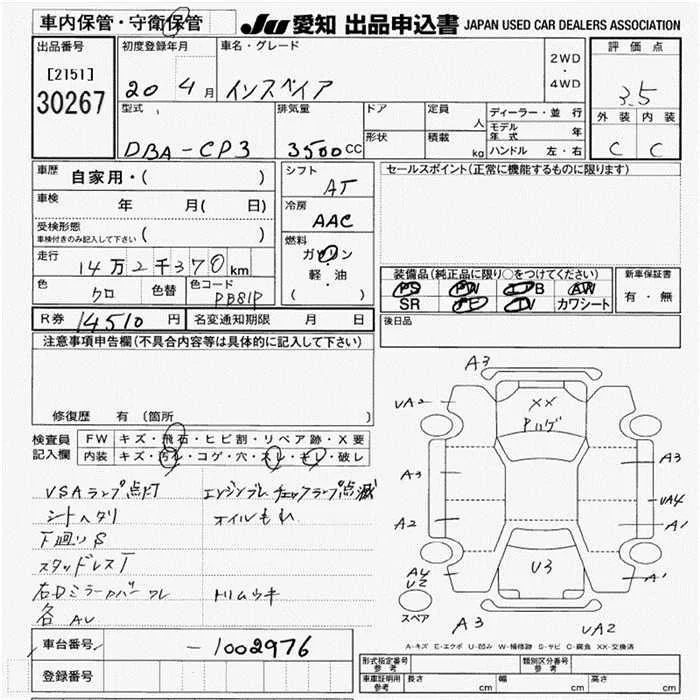 車内保管・守衛保管 JU 愛知 出品申込書 JAPAN USED CAR DEALERS ASSOCIATION
出品番号 初度登録年月 車名・グレード 2WD・4WD 評価点
[2151] 20 4月 インスペイア 3.5
30267 型式 排気量 ドア 定員 人 ディーラー・並行 外装 内装
モデル年式 年
DBA-CP3 3500cc 形状 積載 kg ハンドル 左・右 C C
車歴 自家用・( ) シフト AT セールスポイント(正常に機能するものに限ります)
車検 年 月( 日) 冷房 AAC
受検形態 車検付きのみ記入して下さい ( )
燃料 ガソリン
走行 14万2千370km 軽・油 装備品(純正品に限り○をつけてください) 新車保証書
色 クロ 色替 色コード PB81P ( ) PS PW エアB AW 有・無
SR PE TV カワシート
R券 14510円 名変通知期限 月 日 後日品
注意事項申告欄(不具合内容等は具体的に記入して下さい)
修復歴 有(箇所 )
検査員記入欄 FW キズ・飛石・ヒビ割・リペア跡・X要
内装 キズ・汚れ・コゲ・穴・スレ・キレ・破レ
VSAランプ点灯 エンジンブレ チェックランプ点滅
シートヘタリ オイルもれ
下廻りS
スタッドレスT
右Dミラーカバーワレ トリムウキ
各AU
A3
UA2 XX
Pハゲ
A3 A3
UA4
A2 A1
A4
U2 U3 A1
スペア A3 UA2
A-キズ E-エクボ U-凹み W-補修跡 S-サビ C-腐食 XX-交換済
車台番号 -1002976
登録番号 形式指定番号 参考 類別区分番号 参考
車庫証明用 参考 長さ cm 幅 cm 高さ cm